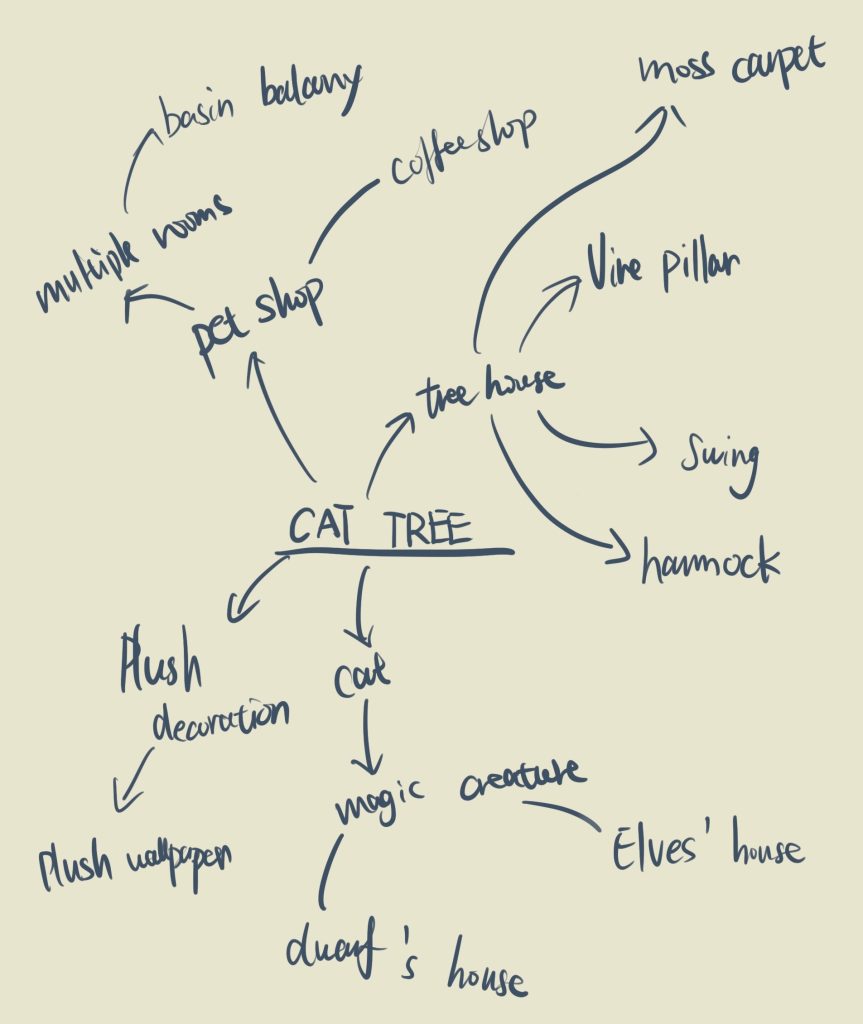 moss carpet
basin balany
coffeeshop
multiple rooms
Vine pillar
pet shop
tree house
Swing
CAT TREE
hammock
Plush
decoration
cat
magic creature
Plush wallpaper
Elves' house
dwarf's house